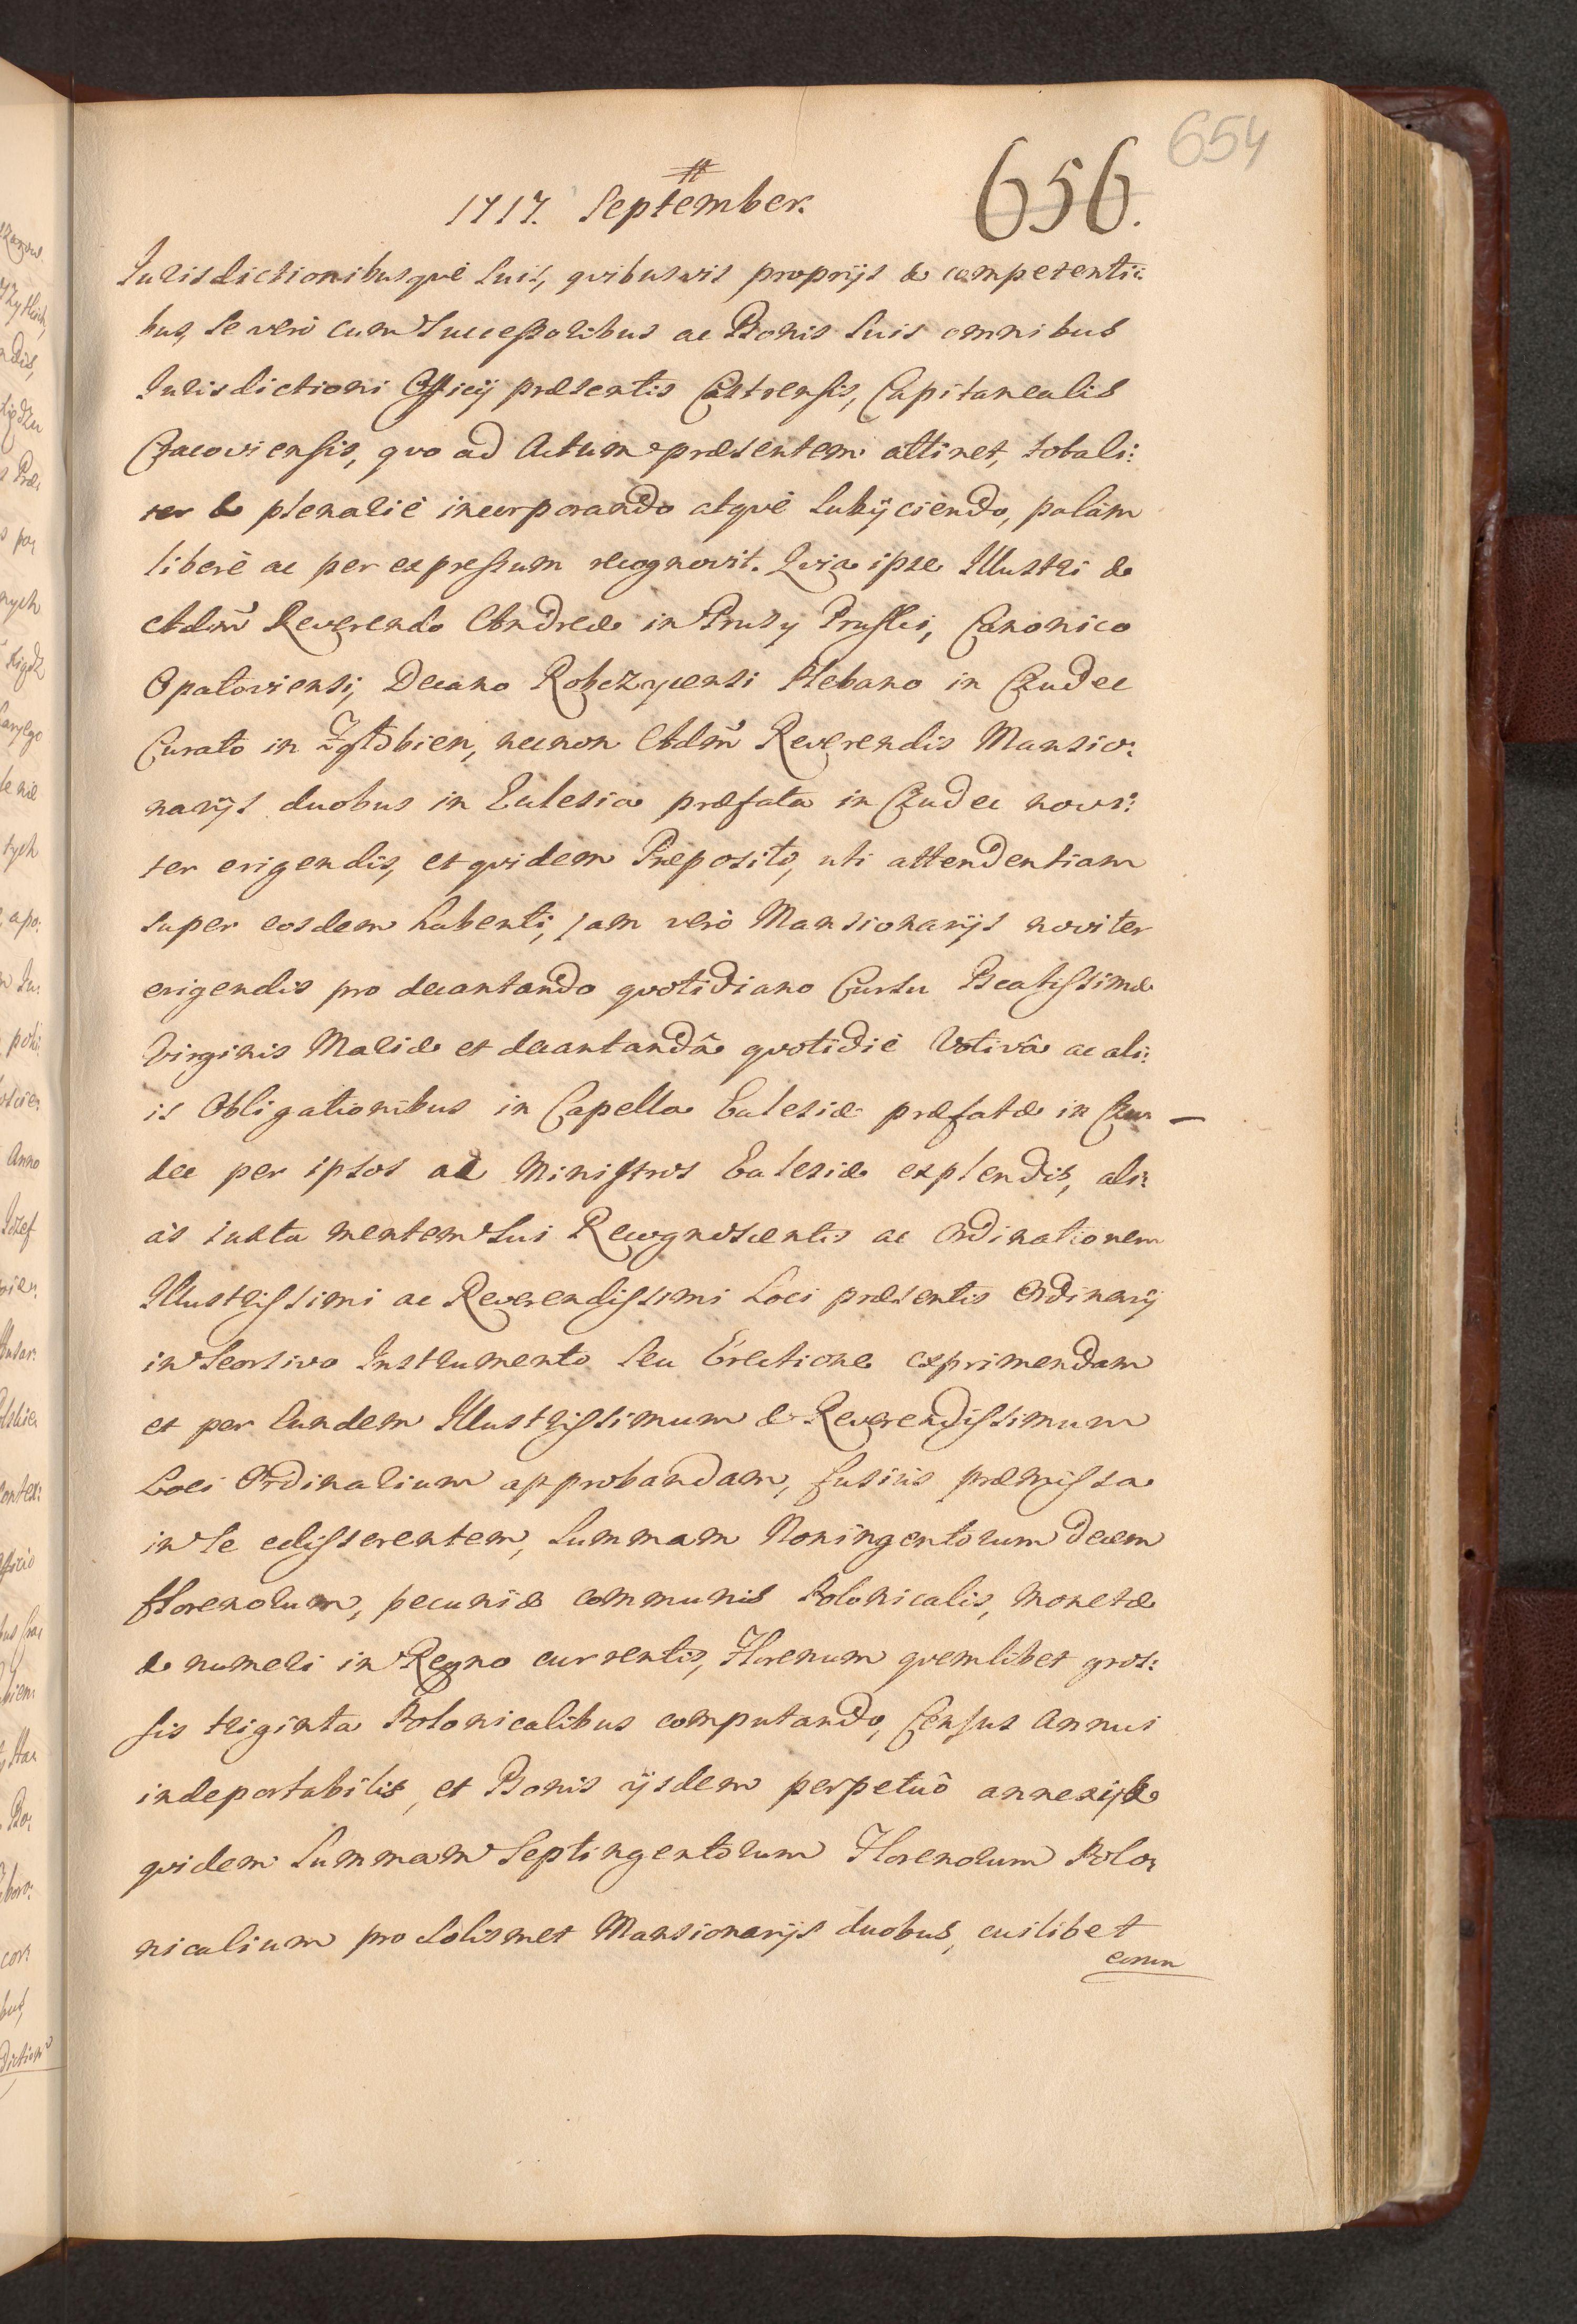 654
656.
1717. September.
Jurisdictionibusquè suis, qvibusvis proprijs & competenti:
bus, se verò cum Successoribus ac Bonis suis omnibus
Jurisdictioni Officij præsentis Castrensis, Capitanealis
Cracoviensis, qvo ad Actum præsentem attinet, totali:
ter & plenariè incorporando atqvè subijciendo, palàm
liberè ac per expressum recognovit. Qvia ipse Illustri &
Admˀ Reverendo Andreæ in Prusy Pruski, Canonico
Opatoviensi, Decano Robczycensi Plebano in Czudec
Curato in Zgłobien, necnon Admˀ Reverendis Mansio:
narijs duobus in Eclesia præfata in Czudec novi:
ter erigendis, et qvidem Præposito, uti attendentiam
super eosdem habenti, jam verò Mansionarijs noviter
erigendis pro decantando qvotidiano Cursu Beatissimæ
Virginis Mariæ et decantandâ qvotidiè Votivâ ac ali:
is Obligationibus in Capella Eclesiæ præfatæ in Czu:
dec per ipsos ad Ministros Eclesiæ explendis, ali:
às iuxta mentem sui Recognoscentis ac Ordinationem
Illustrissimi ac Reverendissimi Loci præsentis Ordinarij
in Seorsivo Instrumento seu Erectione exprimendam
et per Eundem Illustrissimum & Reverendissimum
Loci Ordinarium approbandam, fusiùs præmissa
in se edisserentem, Summam Noningentorum decem
florenorum, pecuniæ communis Polonicalis, monetæ
& numeri in Regno currentis, Florenum qvemlibet gros:
sis triginta Polonicalibus computando, Census Annui
indeportabilis, et Bonis ijsdem perpetuò annexi, &
qvidem Summam Septingentorum Florenorum Polo:
nicalium pro solismet Mansionarijs duobus, cuilibet
eorum